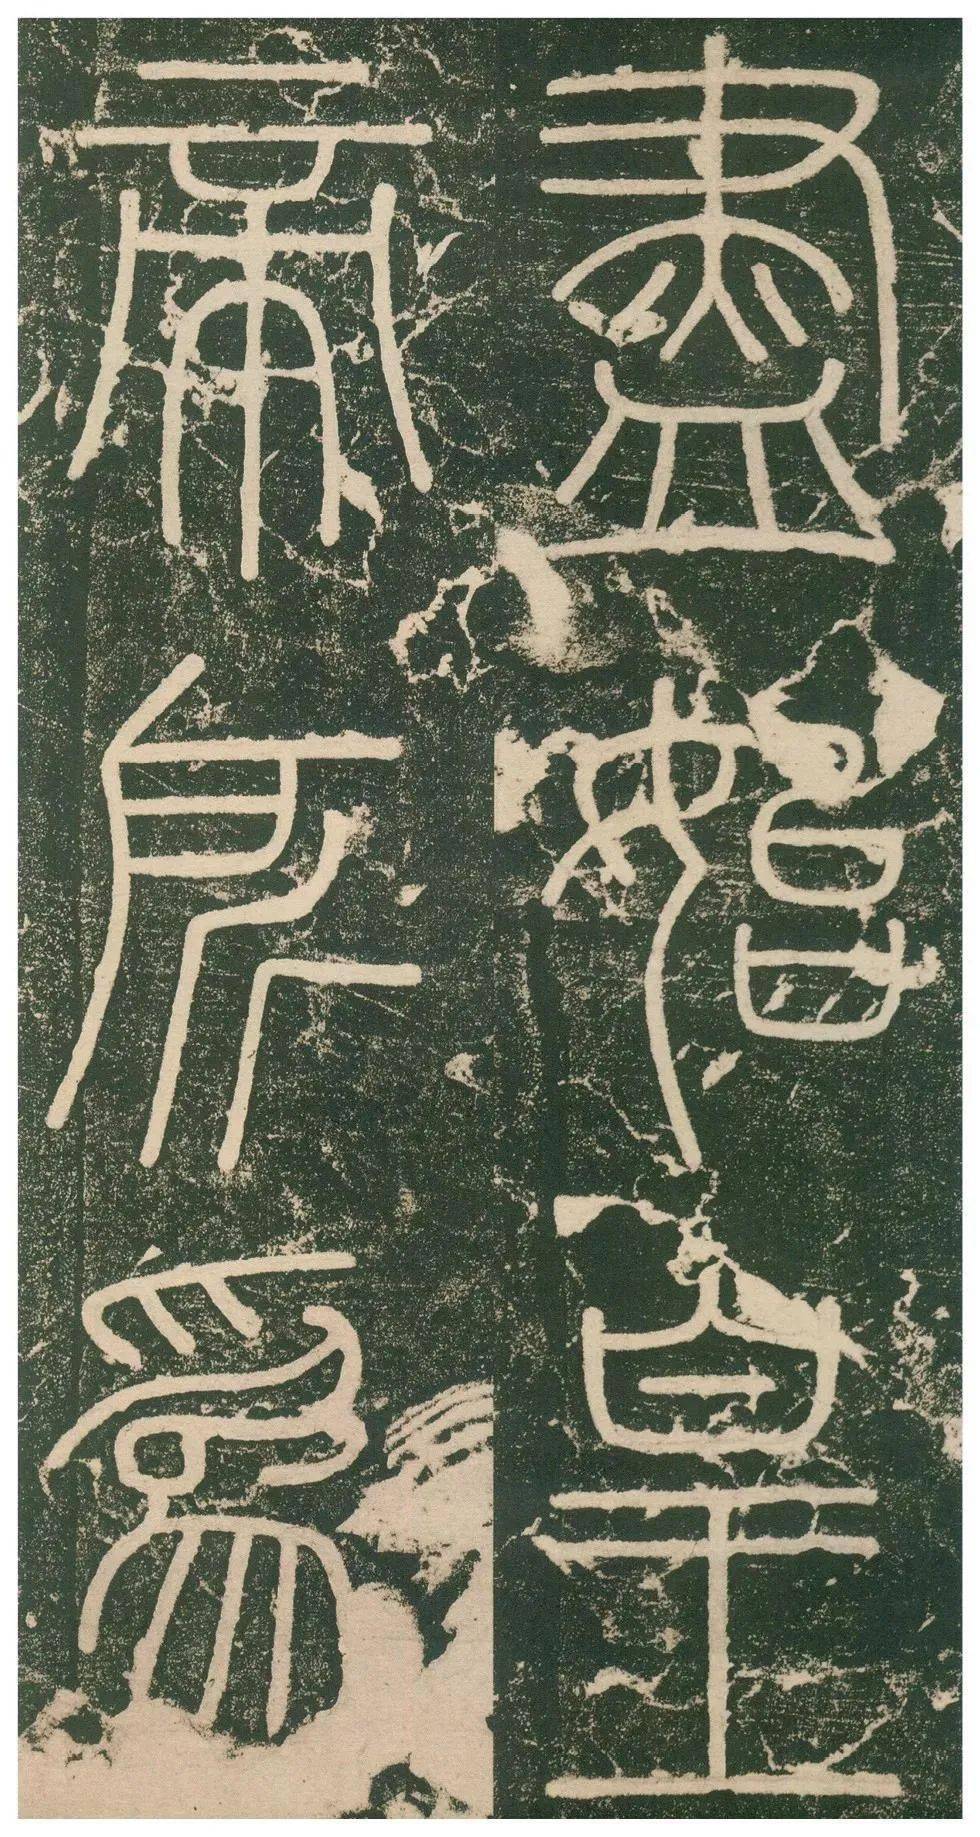 盡始皇
帝所爲